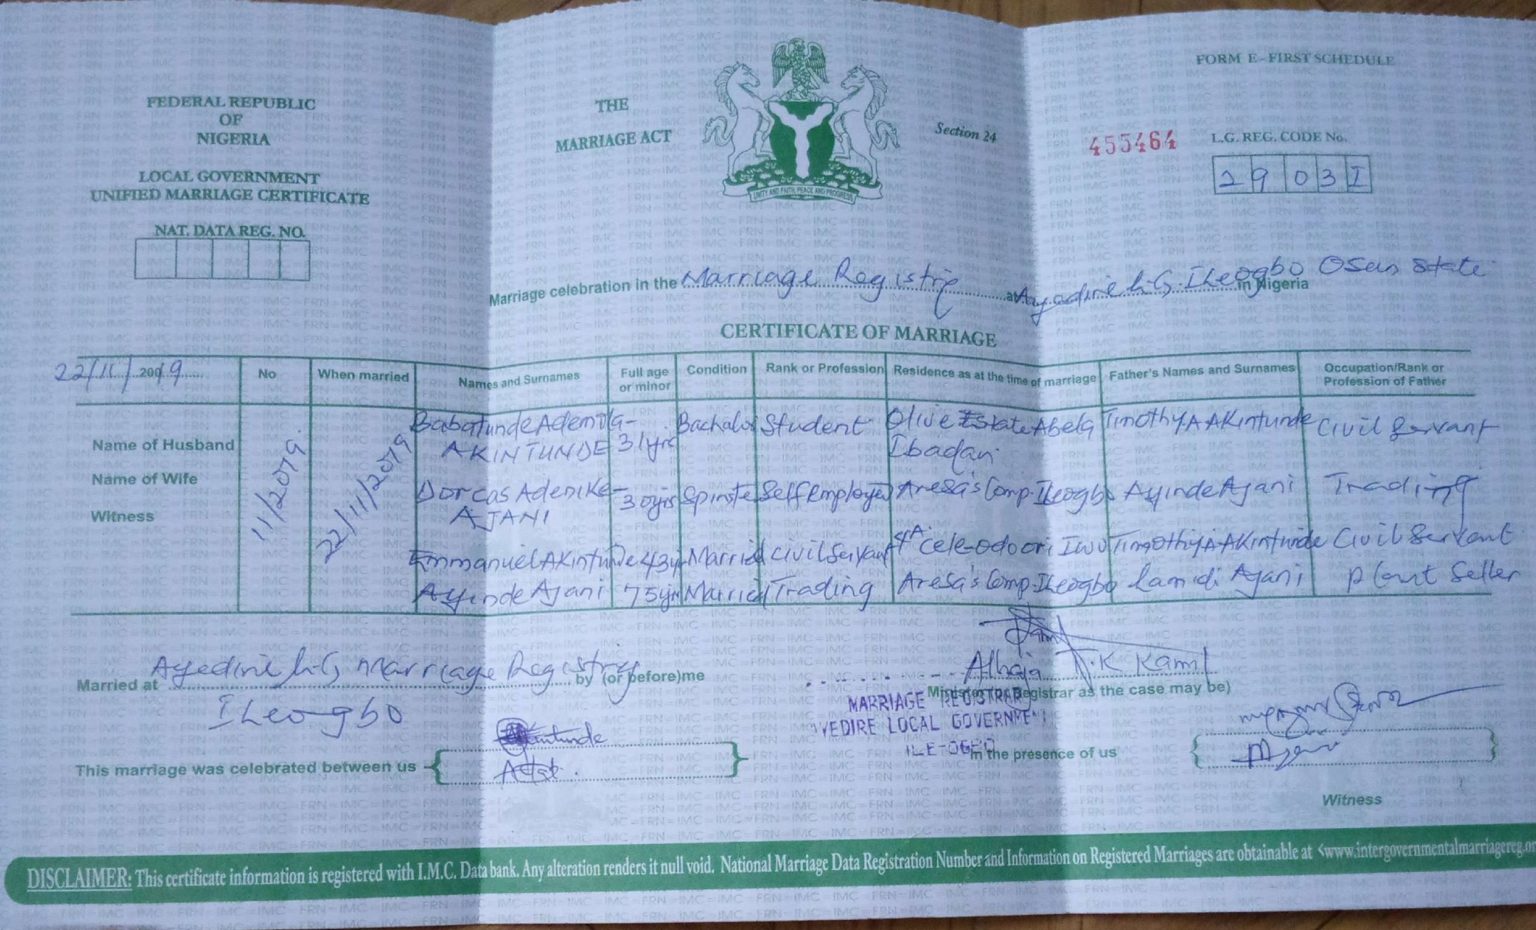 FORM E - FIRST SCHEDULE
FEDERAL REPUBLIC
OF
NIGERIA
LOCAL GOVERNMENT
UNIFIED MARRIAGE CERTIFICATE
NAT. DATA REG. NO.
THE
MARRIAGE ACT
UNITY AND FAITH, PEACE AND PROGRESS
Section 24
455464
L.G. REG. CODE No.
29031
Marriage celebration in the Marriage Registry at Ayedire L.G, Ileogbo Osun State in Nigeria
CERTIFICATE OF MARRIAGE
22/11/2019 No When married Names and Surnames Full age or minor Condition Rank or Profession Residence as at the time of marriage Father's Names and Surnames Occupation/Rank or Profession of Father
11/2019
22/11/2019
Name of Husband Babatunde Ademila- AKINTUNDE 31yrs Bachelor Student Olive Estate Abela Ibadan Timothy A AKintunde Civil Servant
Name of Wife Dorcas Adenike- AJANI 30yrs Spinster Self Employed Aresa's Comp. Ileogbo Ayinde Ajani Trading
Witness Emmanuel AKintunde 43yr Married Civil Servant Iwo Timothy A AKintunde Civil Servant
Ayinde Ajani 75yr Married Trading Aresa's Comp. Ileogbo Lamidi Ajani Plant Seller
Married at Ayedire L.G Marriage Registry by (or before) me Alhaja Kamil
Ileogbo
Minister (or Registrar as the case may be)
MARRIAGE REGISTRAR
AYEDIRE LOCAL GOVERNMENT
ILE-OGBO
This marriage was celebrated between us
in the presence of us
Witness
DISCLAIMER: This certificate information is registered with I.M.C. Data bank. Any alteration renders it null void. National Marriage Data Registration Number and Information on Registered Marriages are obtainable at <www.intergovernmentalmarriagereg.or